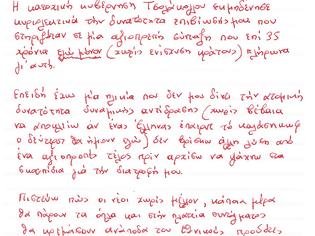 Η κατοχική κυβέρνηση Τσολάκογλου εκμηδένησε
κυριολεκτικά την δυνατότητα επιβίωσής μου που
στηριζόταν σε μια αξιοπρεπή σύνταξη που επί 35
χρόνια εγώ μόνον (χωρίς ενίσχυση κράτους) πλήρωνα
γι' αυτή.
Επειδή έχω μια ηλικία που δεν μου δίνει την ατομική
δυνατότητα δυναμικής αντίδρασης (χωρίς βέβαια
να αποκλείω αν ένας Έλληνας έπαιρνε το καλάσνικωφ
ο δεύτερος θα ήμουν εγώ) δεν βρίσκω άλλη λύση από
ένα αξιοπρεπές τέλος πριν αρχίσω να ψάχνω στα
σκουπίδια για την διατροφή μου.
Πιστεύω πως οι νέοι χωρίς μέλλον, κάποια μέρα
θα πάρουν τα όπλα και στην πλατεία συντάγματος
θα κρεμάσουν ανάποδα του εθνικούς προδότες